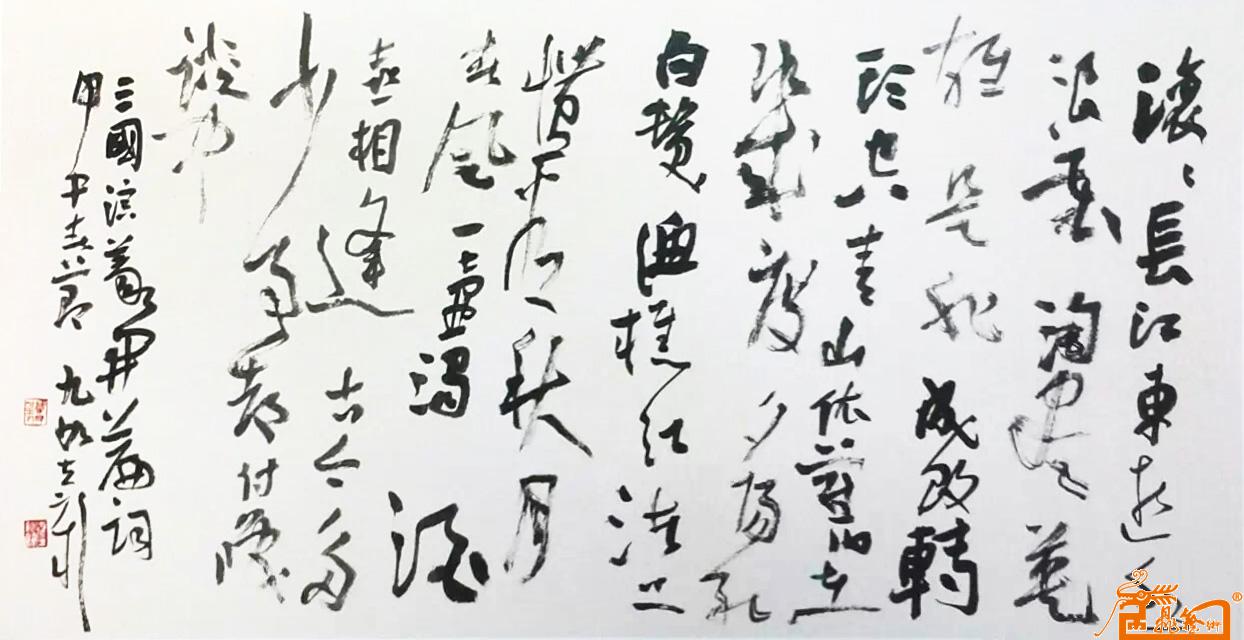 滚滚長江東逝水
浪花淘盡英
雄是非成敗轉
頭空青山依舊在
幾度夕陽紅
白髮漁樵江渚上
慣看秋月
春風一壺濁酒
喜相逢古今多
少事都付笑
談中
三國演義開篇詞
甲申春節九如